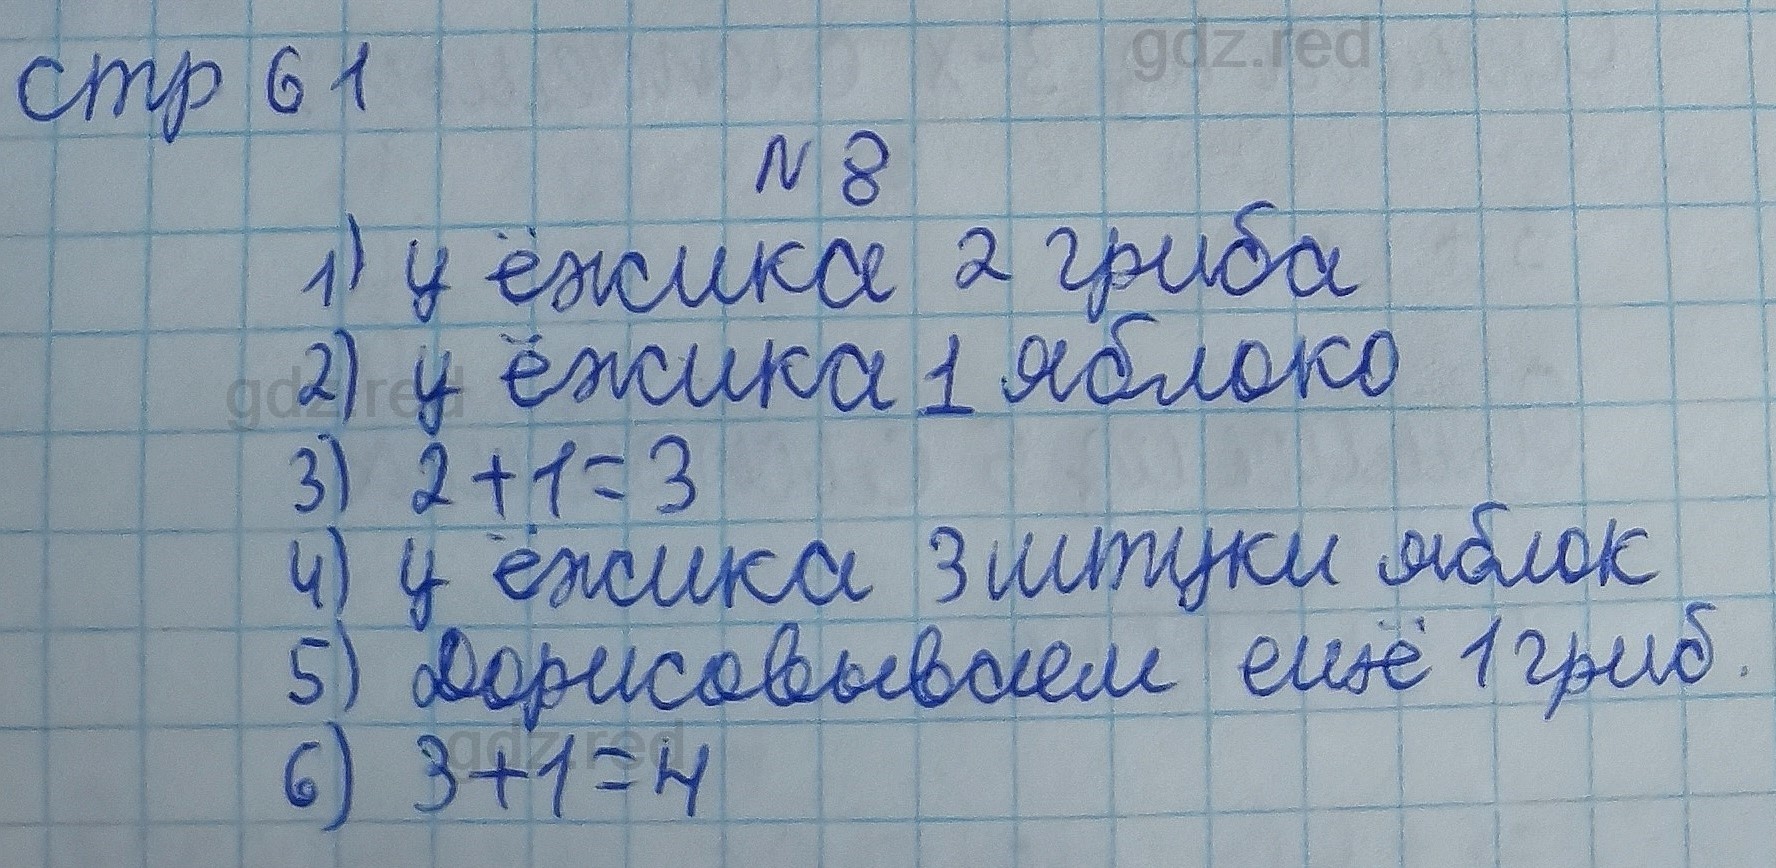 gdz.red
стр 61
N 8
1) у ёжика 2 гриба
2) у ёжика 1 яблоко
gdz.red
3) 2+1=3
4) у ёжика 3 штуки яблок
5) Дорисовываем ещё 1 гриб.
6) 3+1=4
gdz.red